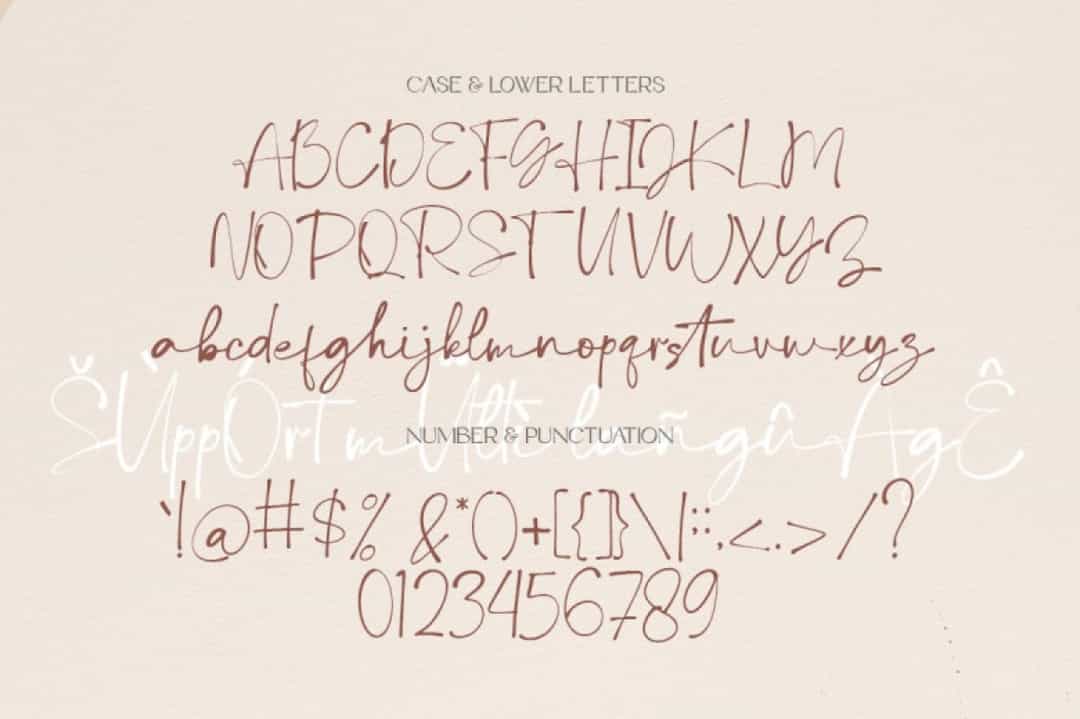 CASE & LOWER LETTERS
ABCDEFGHIJKLM
NOPQRSTUVWXYZ
abcdefghijklmnopqrstuvwxyz
ŠÙppÓrt mÜltè lañgûAgÊ
NUMBER & PUNCTUATION
`!@#$% &*()+[{]}\|:;,<.>/?
0123456789